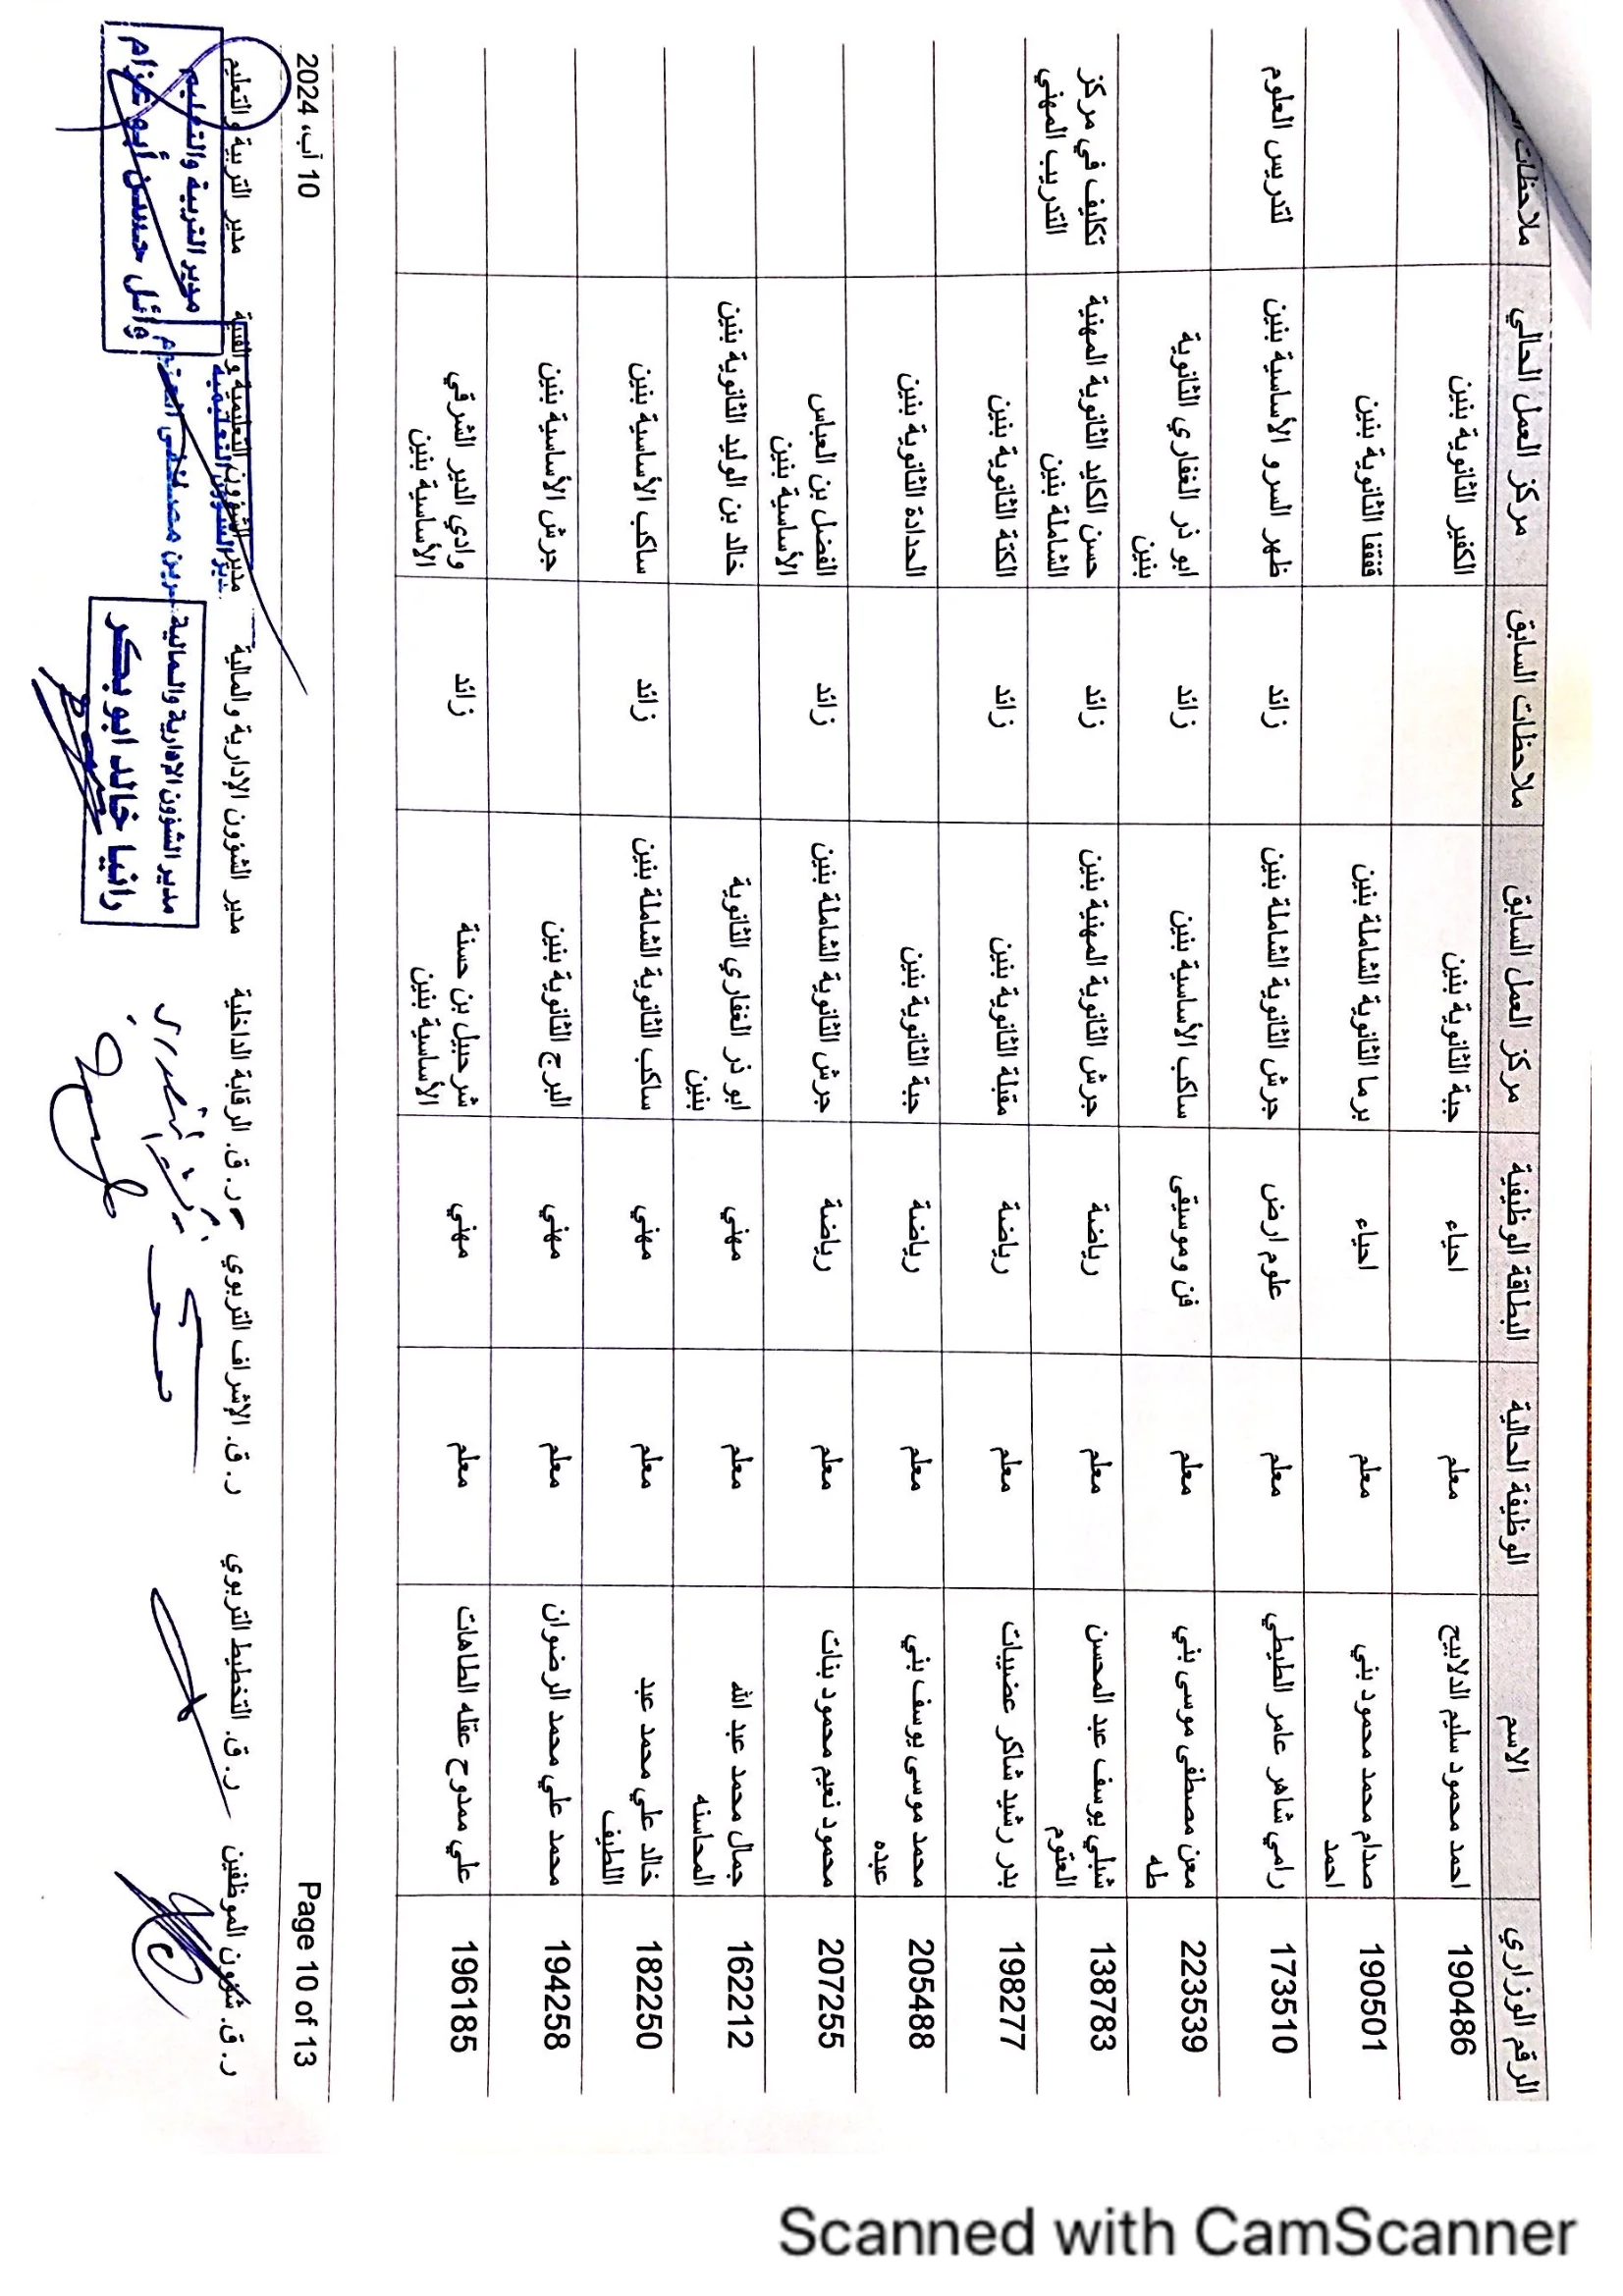 الرقم الوزاري الاسم الوظيفة الحالية البطاقة الوظيفية مركز العمل السابق ملاحظات السابق مركز العمل الحالي ملاحظات
190486 احمد محمود سليم الدلابيح معلم احياء جبة الثانوية بنين الكفير الثانوية بنين
190501 صدام محمد محمود بني معلم احياء برما الثانوية الشاملة بنين قفقفا الثانوية بنين
احمد
173510 رامي شاهر عامر الطيطي معلم علوم ارض جرش الثانوية الشاملة بنين زائد ظهر السرو الأساسية بنين لتدريس العلوم
223539 معن مصطفى موسى بني معلم فن وموسيقى ساكب الأساسية بنين زائد ابو ذر الغفاري الثانوية
طه بنين
138783 شبلي يوسف عبد المحسن معلم رياضة جرش الثانوية المهنية بنين زائد حسن الكايد الثانوية المهنية تكليف في مركز
العتوم الشاملة بنين التدريب المهني
198277 بدر رشيد شاكر عضيبات معلم رياضة مقبلة الثانوية بنين زائد الكتة الثانوية بنين
205488 محمد موسى يوسف بني معلم رياضة جبة الثانوية بنين الحدادة الثانوية بنين
عبده
207255 محمود نعيم محمود بنات معلم رياضة جرش الثانوية الشاملة بنين زائد الفضل بن العباس
الأساسية بنين
162212 جمال محمد عبد الله معلم مهني ابو ذر الغفاري الثانوية خالد بن الوليد الثانوية بنين
المحاسنه بنين
182250 خالد علي محمد عبد معلم مهني ساكب الثانوية الشاملة بنين زائد ساكب الأساسية بنين
اللطيف
194258 محمد علي محمد الرضوان معلم مهني البرج الثانوية بنين جرش الأساسية بنين
196185 علي ممدوح عقله الطاهات معلم مهني شرحبيل بن حسنة زائد وادي الدير الشرقي
الأساسية بنين الأساسية بنين
Page 10 of 13 10 آب، 2024
ر. ق. شؤون الموظفين ر. ق. التخطيط التربوي ر. ق. الإشراف التربوي ر. ق. الرقابة الداخلية مدير الشؤون الإدارية والمالية مدير الشؤون التعليمية والفنية مدير التربية والتعليم
مدير الشؤون الإدارية والمالية
رانيا خالد ابو بكر
مدير التربية والتعليم
وائل حسن أبو عزام
Scanned with CamScanner